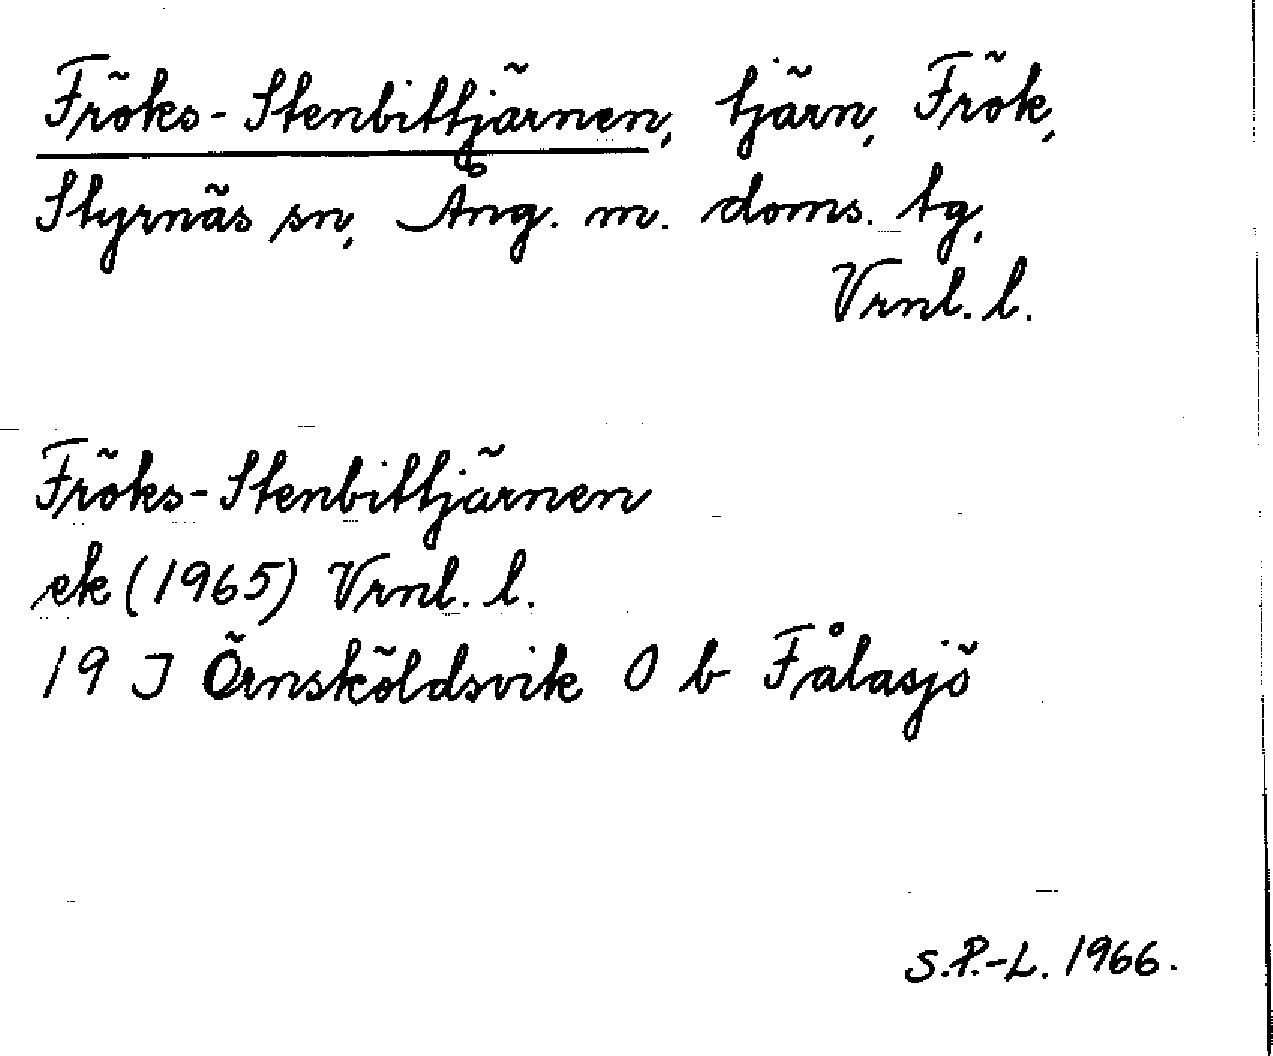 Fröks-Stenbittjärnen, tjärn, Frök,
Styrnäs sn, Ång. m. doms. tg,
Vrnl. l.
Fröks-Stenbittjärnen
ek (1965) Vrnl. l.
19 J Örnsköldsvik 0 b Fålasjö
S.P.-L. 1966.